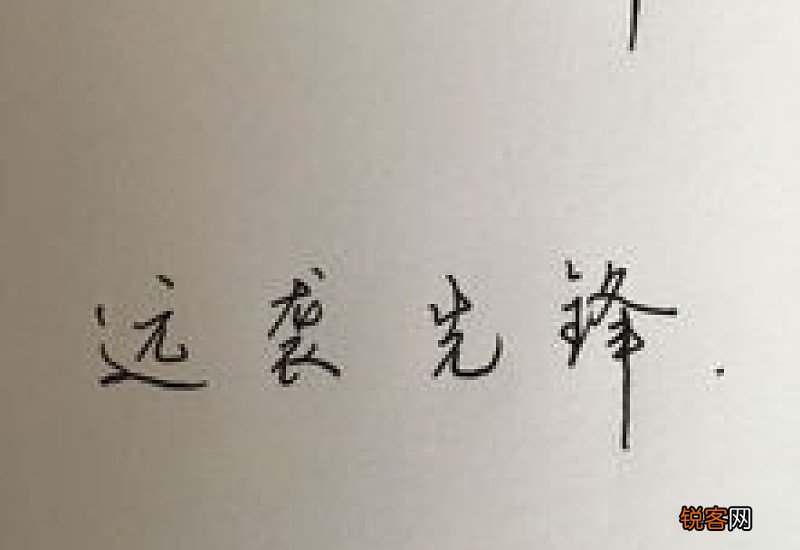 远袭先锋.
锐客网